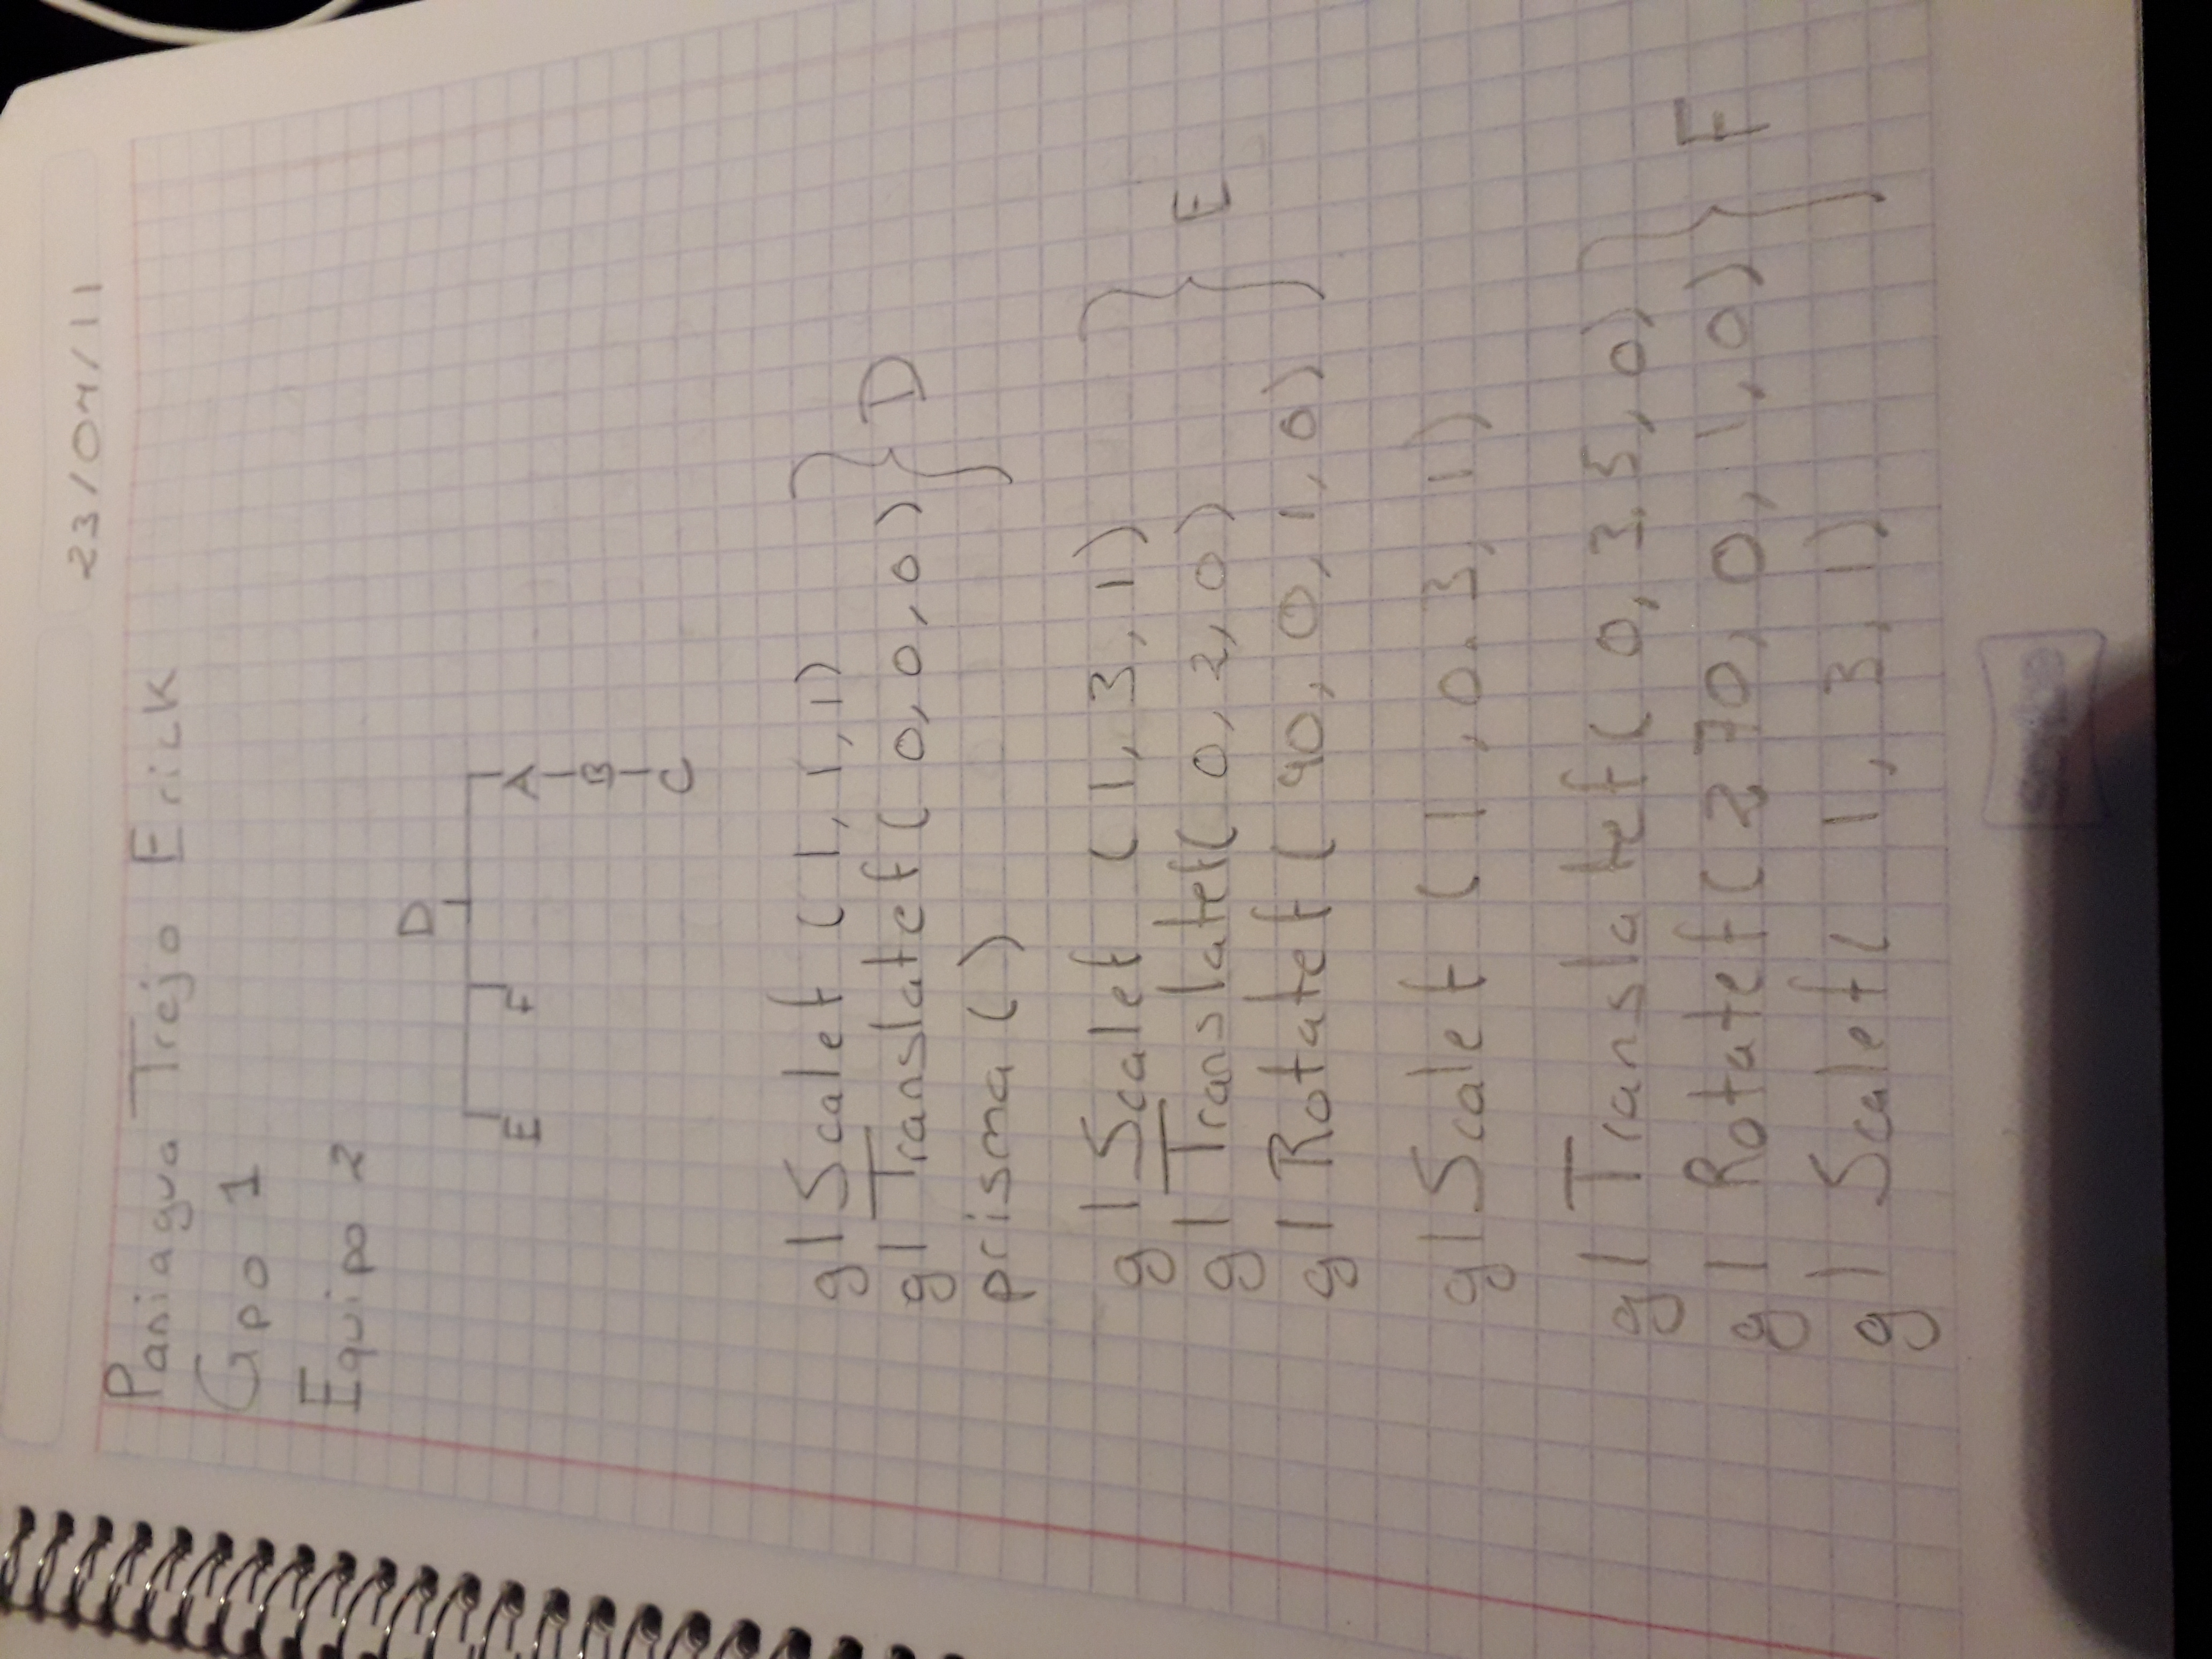 23/04/11
Paniagua Trejo Erick
Gpo 1
Equipo 2
D
E F A
B
C
glScalef (1, 1, 1)
glTranslatef (0, 0, 0) D
prisma ()
glScalef (1, 3, 1)
glTranslatef (0, 2, 0) E
glRotatef (90, 0, 1, 0)
glScalef (1, 0.3, 1)
glTranslatef (0, 3.5, 0)
glRotatef (270, 0, 1, 0) F
glScalef (1, 3, 1)
Scribe